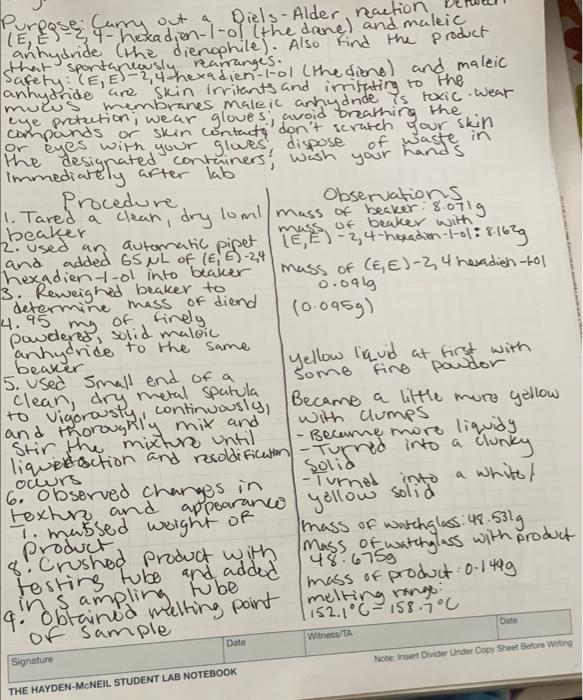 Purpose: Carry out a Diels-Alder reaction between
(E,E)-2,4-hexadien-1-ol (the diene) and maleic
anhydride (the dienophile). Also find the product
that spontaneously rearranges.
Safety: (E,E)-2,4-hexadien-1-ol (the diene) and maleic
anhydride are skin irritants and irritating to the
mucus membranes maleic anhydride is toxic. wear
eye protection, wear gloves, avoid breathing the
compounds or skin contact, don't scratch your skin
or eyes with your gloves, dispose of waste in
the designated containers, wash your hands
immediately after lab
Procedure
1. Tared a clean, dry 10ml
beaker
2. Used an automatic pipet
and added 65 µL of (E,E)-2,4
hexadien-1-ol into beaker
3. Reweighed beaker to
determine mass of diend
4. 95 mg of finely
powdered, solid maleic
anhydride to the same
beaker
5. Used small end of a
clean, dry metal spatula
to vigorously, continuously,
and thoroughly mix and
stir the mixture until
liquefaction and resolidification
occurs
6. Observed changes in
texture and appearance
7. massed weight of
product
8. Crushed product with
testing tube and added
in sampling tube
9. Obtained melting point
of sample
Observations
mass of beaker: 8.071g
mass of beaker with
(E,E)-2,4-hexadien-1-ol: 8.162g
mass of (E,E)-2,4 hexadien-1-ol
0.091g
(0.095g)
yellow liquid at first with
some fine powder
Became a little more yellow
with clumps
- Became more liquidy
- Turned into a clunky
solid
- Turned into a white/
yellow solid
mass of watchglass: 48.531g
Mass of watchglass with product
48.675g
mass of product: 0.144g
melting range:
152.1°C - 158.7°C
Signature Date Witness/TA Date
THE HAYDEN-McNEIL STUDENT LAB NOTEBOOK Note: Insert Divider Under Copy Sheet Before Writing